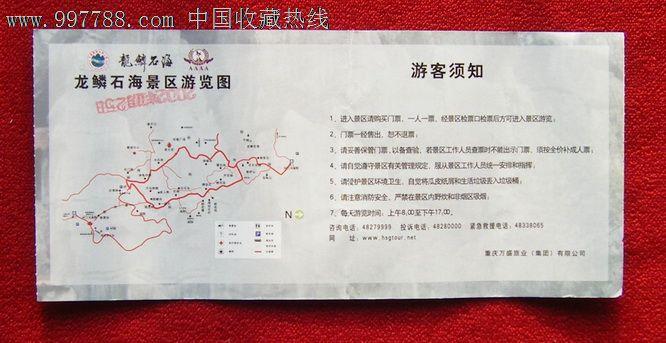 www.997788.com 中国收藏热线
龍鱗石海
AAAA
龙鳞石海景区游览图
N
游客须知
1、进入景区请购买门票，一人一票，经景区检票口检票后方可进入景区游览；
2、门票一经售出，恕不退票；
3、请妥善保管门票，以备查验，若景区工作人员查票时不能出示门票，须按全价补成人票；
4、请自觉遵守景区有关管理规定，服从景区工作人员统一安排和指挥；
5、请爱护景区环境卫生，自觉将瓜皮纸屑和生活垃圾丢入垃圾桶；
6、请注意消防安全，严禁在景区内野炊和非烟区吸烟；
7、每天游览时间：上午8.00至下午17.00。
咨询电话：48279999 投诉电话：48280000 紧急救援电话：48338065
网 址：www.hsgtour.net
重庆万盛旅业（集团）有限公司